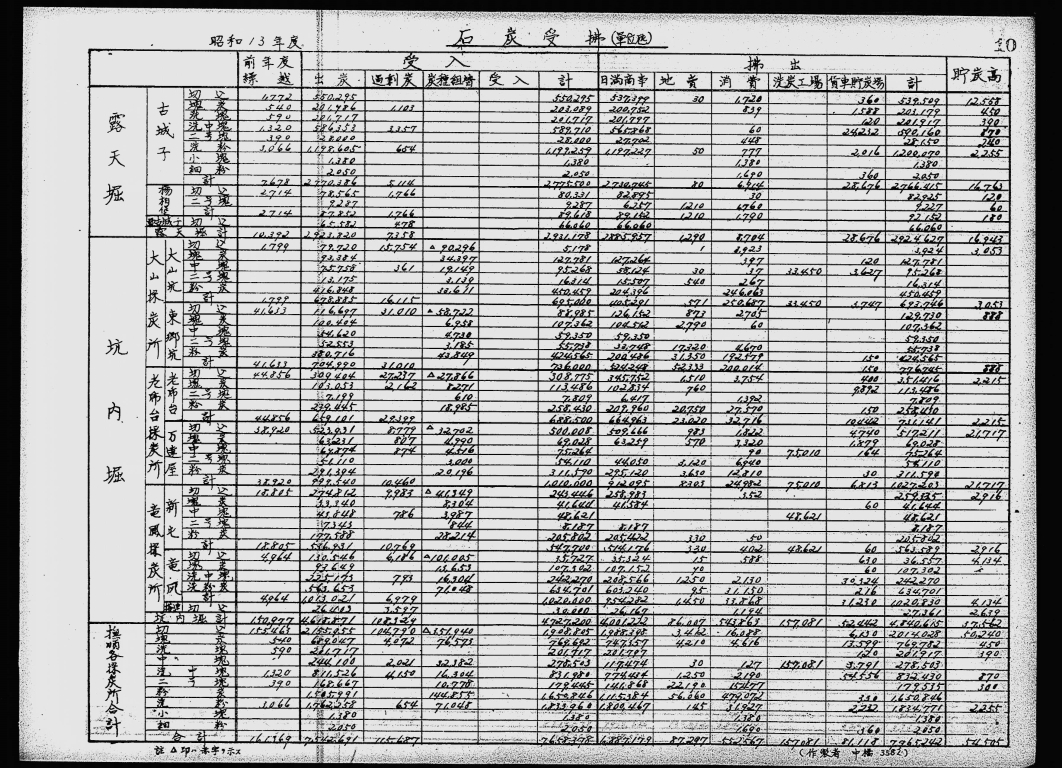 昭和13年度 石炭受拂(單位瓲) 10
前年度繰越 受入 拂出 貯炭高
出炭 過剰炭 炭種組替 受入 計 日満商事 地賣 消費 洗炭工場 貨車貯炭場 計
露天掘
古城子
切込 1,772 550,295 550,295 537,399 30 1,720 360 539,509 12,558
塊炭 540 201,986 1,103 203,089 200,752 839 1,588 203,179 450
590 201,717 201,717 201,797 120 201,917 390
洗中塊 1,320 586,353 3,357 589,710 565,868 60 24,232 590,160 870
二号塊 390 28,000 28,000 27,702 448 28,150 240
洗粉 3,066 1,198,605 654 1,199,259 1,197,227 50 777 2,016 1,200,070 2,255
小塊 1,380 1,380 1,380 1,380
細粉 2,050 2,050 1,690 360 2,050
計 7,678 2,770,386 5,114 2,775,500 2,730,745 80 6,914 28,676 2,766,415 16,763
楊柏堡
切込 2,714 78,565 1,766 80,331 82,895 30 82,925 120
二号塊 9,287 9,287 6,257 1,210 1,760 9,227 60
計 2,714 87,852 1,766 89,618 89,152 1,210 1,790 92,152 180
切込 65,582 478 66,060 66,060 66,060
露天掘計 10,392 2,923,820 7,358 2,931,178 2,885,957 1,290 8,704 28,676 2,924,627 16,943
坑内掘
大山採炭所
大山坑
切込 1,799 79,720 15,754 △90,296 5,178 1 3,923 3,924 3,053
塊炭 93,384 34,397 127,781 127,264 397 120 127,781
中塊 75,758 361 19,149 95,268 58,124 30 37 33,450 3,627 95,268
二号塊 13,175 3,139 16,314 15,507 540 267 16,314
粉炭 416,848 33,611 450,459 204,396 246,063 450,459
計 1,799 678,885 16,115 695,000 405,291 571 250,687 33,450 3,747 693,746 3,053
東郷坑
切込 41,633 116,697 31,010 △58,722 88,985 126,152 873 2,705 129,730 888
塊炭 100,404 6,958 107,362 104,512 2,790 60 107,362
中塊 54,620 4,730 59,350 59,350 59,350
二号塊 52,553 3,185 55,738 33,748 17,320 4,670 55,738
粉炭 380,716 43,849 424,565 200,486 31,350 192,579 150 424,565
計 41,633 704,990 31,010 736,000 524,248 52,333 200,014 150 776,745 888
老虎台採炭所
老虎台
切込 44,856 309,404 27,237 △27,866 308,775 345,752 1,510 3,754 400 351,416 2,215
塊炭 103,053 2,162 8,271 113,486 102,834 760 9,892 113,486
二号塊 7,199 610 7,809 6,417 1,392 7,809
粉炭 239,445 18,985 258,430 209,960 20,750 27,570 150 258,430
計 44,856 659,101 29,399 688,500 664,963 23,020 32,716 10,442 731,141 2,215
万達屋
切込 38,920 523,931 8,779 △32,702 500,008 509,666 983 1,822 4,740 517,211 21,717
塊炭 63,231 807 4,990 69,028 63,259 570 3,320 1,879 69,028
中塊 69,874 874 4,516 75,264 90 75,010 164 75,264
二号塊 51,110 3,000 54,110 44,050 3,120 6,940 54,110
粉炭 291,394 20,196 311,590 295,120 3,630 12,810 30 311,590
計 38,920 999,540 10,460 1,010,000 912,095 8,303 24,982 75,010 6,813 1,027,203 21,717
竜鳳採炭所
新屯
切込 18,805 274,812 9,983 △41,349 243,446 258,983 352 259,335 2,916
塊炭 33,340 8,304 41,644 41,584 60 41,644
中塊 43,848 786 3,987 48,621 48,621 48,621
二号塊 7,343 844 8,187 8,187 8,187
粉炭 177,588 28,214 205,802 205,422 330 50 205,802
計 18,805 536,931 10,769 547,700 514,176 330 402 48,621 60 563,589 2,916
竜鳳
切込 4,964 130,546 6,186 △101,005 35,727 35,324 15 588 630 36,557 4,134
塊炭 93,649 13,653 107,302 107,152 90 60 107,302
洗中塊 225,173 793 16,304 242,270 208,566 1,250 2,130 30,324 242,270
洗粉炭 563,653 71,048 634,701 603,240 95 31,150 216 634,701
計 4,964 1,013,021 6,979 1,020,000 954,282 1,450 33,868 31,230 1,020,830 4,134
切込 26,403 3,597 30,000 26,167 1,194 27,361 2,639
坑内掘計 150,977 4,618,871 108,329 4,727,200 4,001,222 86,007 543,863 157,081 52,442 4,840,615 37,562
撫順各採炭所合計
切込 155,463 2,155,855 104,790 △351,940 1,908,805 1,988,398 3,412 16,088 6,130 2,014,028 50,240
塊炭 540 689,047 4,072 76,573 769,692 747,357 4,210 4,616 13,599 769,782 450
590 201,717 201,717 201,797 120 201,917 390
中塊 244,100 2,021 32,382 278,503 117,474 30 127 157,081 3,791 278,503
洗中塊 1,320 811,526 4,150 16,304 831,980 774,434 1,250 2,190 54,556 832,430 870
二号塊 390 168,667 10,778 179,445 141,868 22,190 15,477 179,535 300
粉炭 1,505,991 144,855 1,650,846 1,115,384 56,060 479,072 330 1,650,846
洗粉 3,066 1,762,258 654 71,048 1,833,960 1,800,467 145 31,927 2,232 1,834,771 2,255
小塊 1,380 1,380 1,380 1,380
細粉 2,050 2,050 1,690 360 2,050
合計 161,369 7,542,691 115,687 7,658,378 6,887,179 87,297 552,567 157,081 81,118 7,765,242 54,505
註 △印ハ赤字ヲ示ス (作製者 中橋 3582)